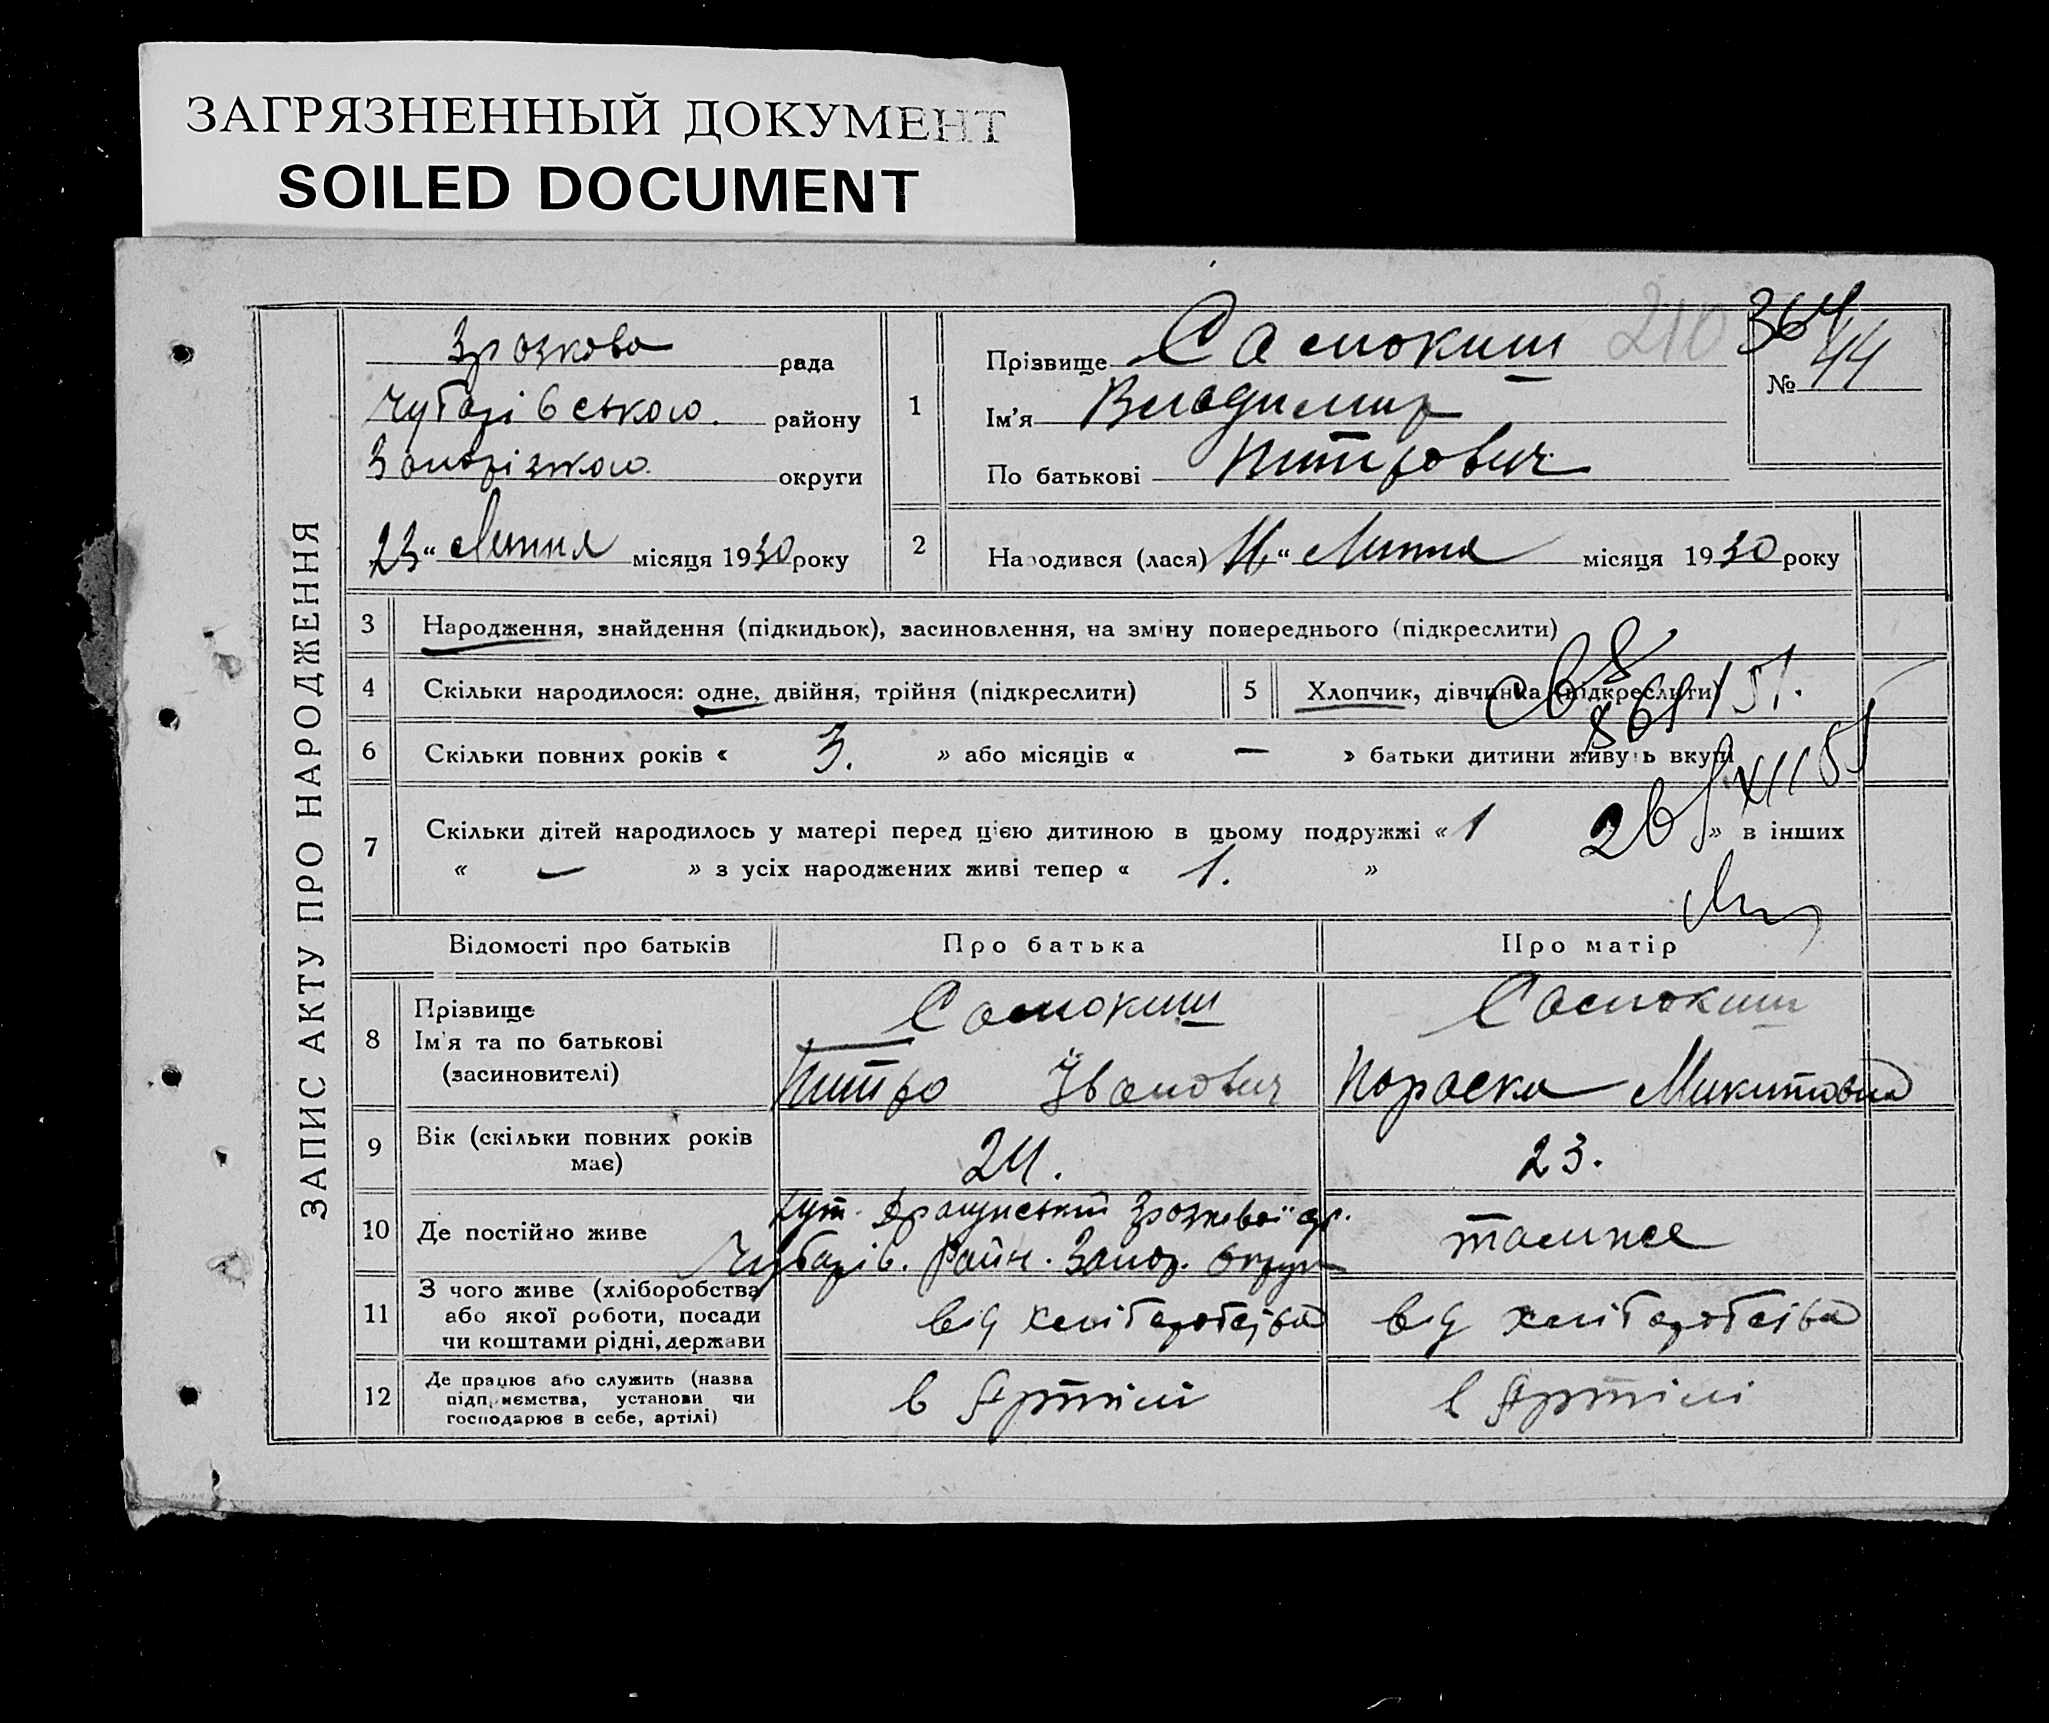 ЗАГРЯЗНЕННЫЙ ДОКУМЕНТ
SOILED DOCUMENT
ЗАПИС АКТУ ПРО НАРОДЖЕННЯ
Зразкова рада
Чубарівською району
Запоріжкою округи
23 " Липня місяця 1930 року
1
Прізвище Самокиш
Ім'я Владимир
По батькові Питрович
210
364
№ 44
2 Народився (лася) " Липня місяця 1930 року
3 Народження, знайдення (підкидьок), засиновлення, на зміну попереднього (підкреслити)
4 Скільки народилося: одне, двійня, трійня (підкреслити)
5 Хлопчик, дівчинка (підкреслити)
6 Скільки повних років « 3. » або місяців « — » батьки дитини живуть вкупі
7 Скільки дітей народилось у матері перед цією дитиною в цьому подружжі « 1 » в інших
« — » з усіх народжених живі тепер « 1. »
Відомості про батьків Про батька Про матір
8 Прізвище
Ім'я та по батькові
(засиновителі)
Самокиш
Питро Іванович
Самокиш
Параска Микитовна
9 Вік (скільки повних років
має)
24.
23.
10 Де постійно живе
хут. Зразковой
Чубарів. Район. Запор. Округи
такице
11 З чого живе (хліборобства
або якої роботи, посади
чи коштами рідні, держави
від хліборобства
від хліборобства
12 Де працює або служить (назва
підприємства, установи чи
господарює в себе, артілі)
в Артілі
в Артілі